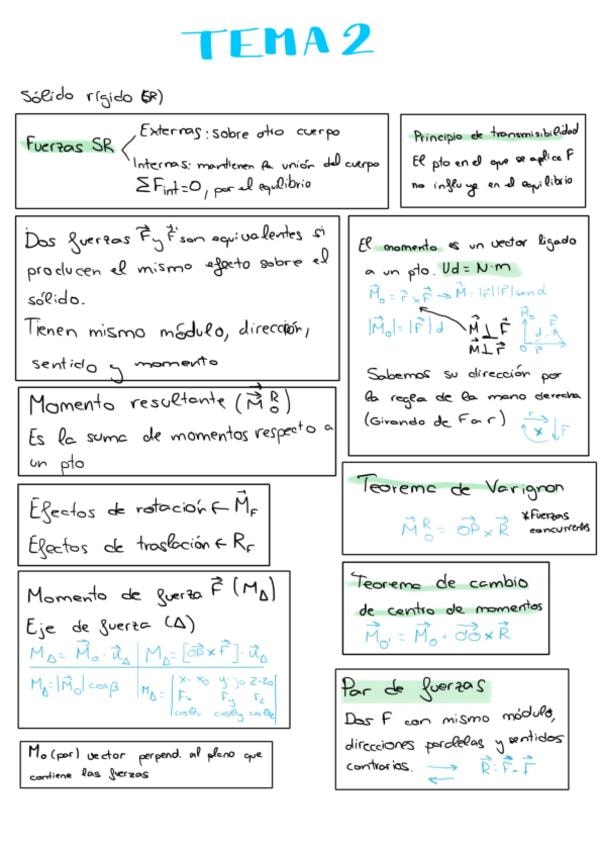 TEMA 2
Sólido rígido (SR)
Fuerzas SR
Externas: sobre otro cuerpo
Internas: mantienen la unión del cuerpo
ΣFint=0, por el equilibrio
Principio de transmisibilidad
El pto en el que se aplica F
no influye en el equilibrio
Dos fuerzas F⃗ y F⃗' son equivalentes si
producen el mismo efecto sobre el
sólido.
Tienen mismo módulo, dirección,
sentido y momento
El momento es un vector ligado
a un pto. Ud = N·m
M⃗o = r⃗ x F⃗ → M = |r||F| sen α
|M⃗o| = |F⃗| d
M⃗ ⊥ F⃗
M⃗ ⊥ r⃗
Sabemos su dirección por
la regla de la mano derecha
(Girando de F a r)
r
x
F
Momento resultante (M⃗oᴿ)
Es la suma de momentos respecto a
un pto
Teorema de Varignon
M⃗oᴿ = OP⃗ x R⃗
*Fuerzas
concurrentes
Efectos de rotación ← M⃗F
Efectos de traslación ← RF
Momento de fuerza F⃗ (MΔ)
Eje de fuerza (Δ)
MΔ = M⃗o · u⃗Δ
MΔ = [OP⃗ x F⃗] · u⃗Δ
MΔ = |M⃗o| cosβ
MΔ = | x-xo y-yo z-zo |
Fx Fy Fz
cosθx cosθy cosθz
Teorema de cambio
de centro de momentos
M⃗o' = M⃗o + O'O⃗ x R⃗
Par de fuerzas
Dos F con mismo módulo,
direcciones paralelas y sentidos
contrarios.
R⃗ = F⃗ - F⃗
Mo (par) vector perpend. al plano que
contiene las fuerzas